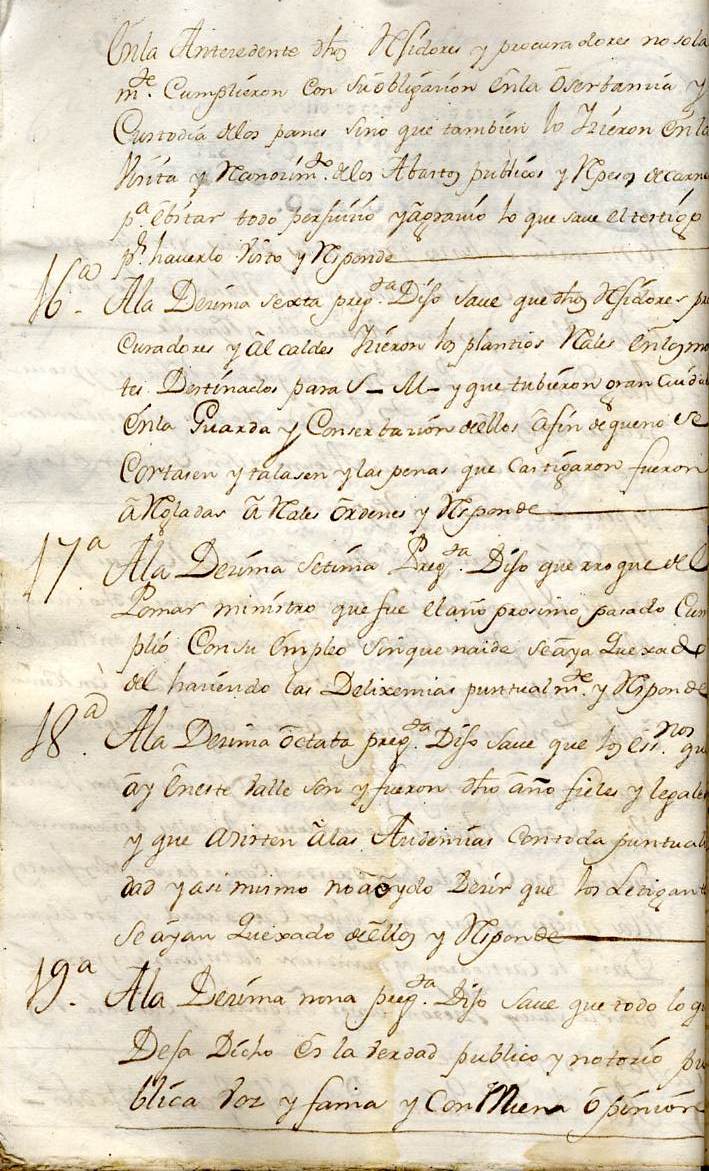 Enla Antezedente dhos Rexidores y procuradores no sola
mte. Cumplieron con su obligazion enla obserbanzia y
Custodia delos panes sino que tambien lo hizieron enla
Visita y Reconozimto. delos Abastos publicos y Repeso de carne
pa. ebitar todo perjuizio y agravio lo que save el testigo
pr. haverlo visto y Responde
16a. Ala Dezima sexta pregta. Dijo save que dhos Rexidores pro
curadores y alcaldes hizieron los plantios Reales enlos mon
tes Destinados para S_ M_ y que tubieron gran cuida
enla Guarda y Conserbazion dellos afin de que no se
Cortasen y talasen y las penas que castigaron fueron
aRegladas a Reales ordenes y Responde
17a. Ala Dezima setima Pregta. Dijo que rroque del
Pomar ministro que fue el año prosimo pasado Cum
plio Consu empleo sin que naide se aya quexado
del haziendo las Delixenzias puntualmte. y Responde
18a. Ala Dezima octaba pregta. Dijo save que los essnos. que
ay eneste Valle son y fueron dho año fieles y legales
y que asisten alas Audienzias contoda puntuali
dad y asi mismo no a oydo Dezir que los Letigantes
se ayan quexado dellos y Responde
19a. Ala Dezima nona pregta. Dijo save que todo lo que
Deja Dicho es la verdad publico y notorio pu
blica voz y fama y Comun opinion